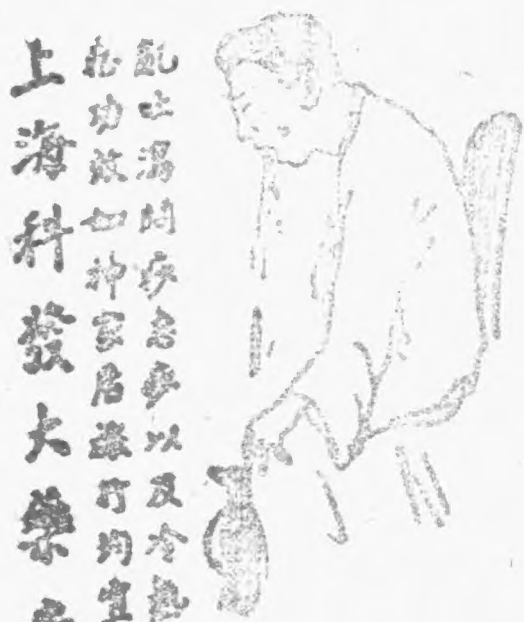 亂吐瀉時疫急痧以及冷熱
功效如神家居旅行均宜
上海科發大藥